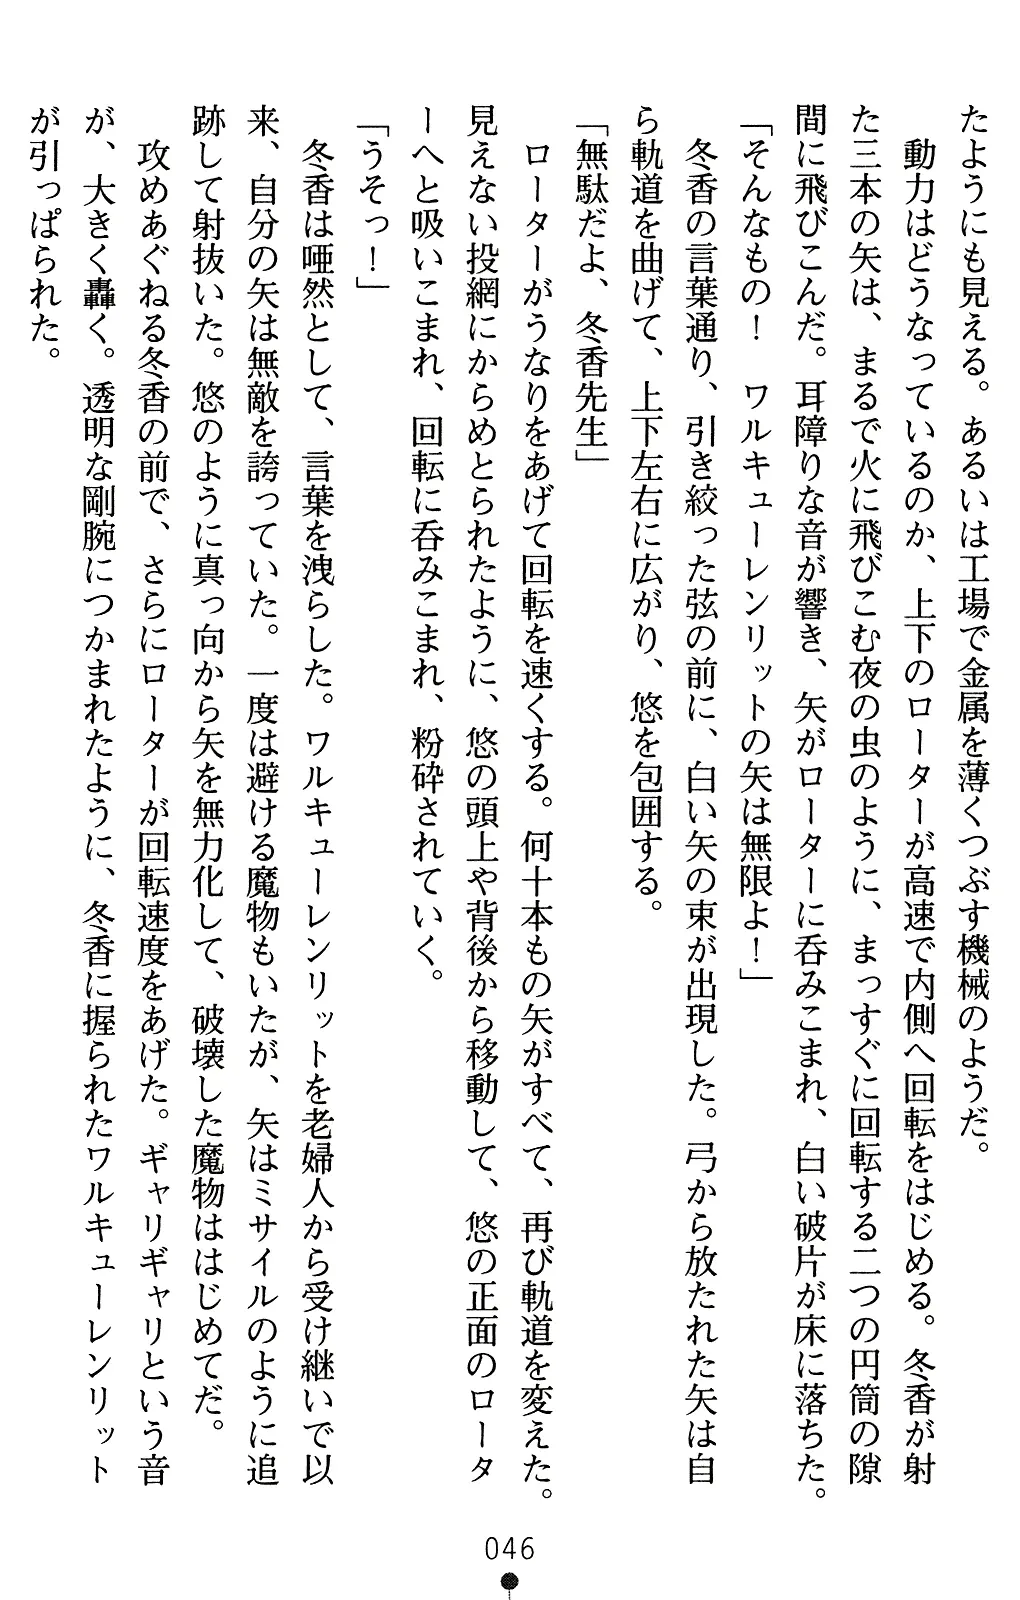 たようにも見える。あるいは工場で金属を薄くつぶす機械のようだ。
動力はどうなっているのか、上下のローターが高速で内側へ回転をはじめる。冬香が射
た三本の矢は、まるで火に飛びこむ夜の虫のように、まっすぐに回転する二つの円筒の隙
間に飛びこんだ。耳障りな音が響き、矢がローターに呑みこまれ、白い破片が床に落ちた。
「そんなもの！　ワルキューレンリットの矢は無限よ！」
冬香の言葉通り、引き絞った弦の前に、白い矢の束が出現した。弓から放たれた矢は自
ら軌道を曲げて、上下左右に広がり、悠を包囲する。
「無駄だよ、冬香先生」
ローターがうなりをあげて回転を速くする。何十本もの矢がすべて、再び軌道を変えた。
見えない投網にからめとられたように、悠の頭上や背後から移動して、悠の正面のロータ
ーへと吸いこまれ、回転に呑みこまれ、粉砕されていく。
「うそっ！」
冬香は唖然として、言葉を洩らした。ワルキューレンリットを老婦人から受け継いで以
来、自分の矢は無敵を誇っていた。一度は避ける魔物もいたが、矢はミサイルのように追
跡して射抜いた。悠のように真っ向から矢を無力化して、破壊した魔物ははじめてだ。
攻めあぐねる冬香の前で、さらにローターが回転速度をあげた。ギャリギャリという音
が、大きく轟く。透明な剛腕につかまれたように、冬香に握られたワルキューレンリット
が引っぱられた。
046